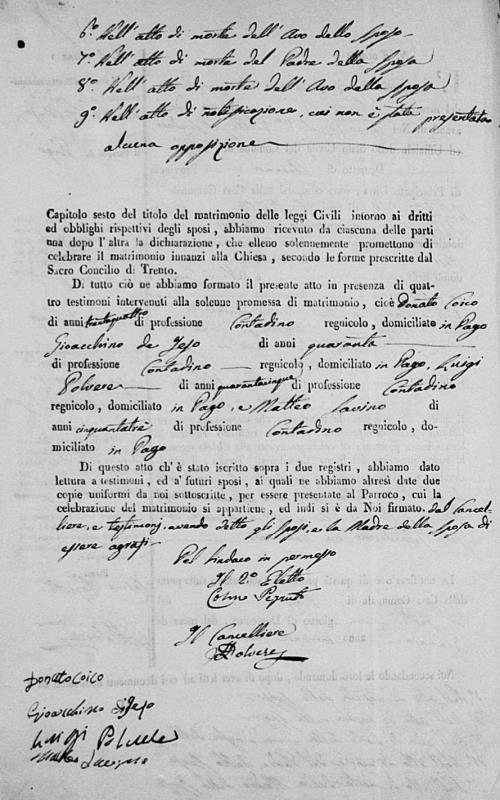 6.° Nell'atto di morte dell'Avo dello sposo
7.° Nell'atto di morte del Padre della sposa
8.° Nell'atto di morte dell'Avo della sposa
9.° Nell'atto di notificazione, cui non è stata presentata
alcuna opposizione
Capitolo sesto del titolo del matrimonio delle leggi Civili intorno ai dritti
ed obblighi rispettivi degli sposi, abbiamo ricevuto da ciascuna delle parti
una dopo l'altra la dichiarazione, che elleno solennemente promettono di
celebrare il matrimonio innanzi alla Chiesa, secondo le forme prescritte dal
Sacro Concilio di Trento.
Di tutto ciò ne abbiamo formato il presente atto in presenza di quat-
tro testimoni intervenuti alla solenne promessa di matrimonio, cioè Donato Coico
di anni trentaquattro di professione Contadino regnicolo, domiciliato in Pago
Gioacchino de Jeso di anni quaranta
di professione Contadino regnicolo, domiciliato in Pago, Luigi
Polvere di anni quarantacinque di professione Contadino
regnicolo, domiciliato in Pago, e Matteo Iavino di
anni cinquantatrè di professione Contadino regnicolo, do-
miciliato in Pago
Di questo atto ch'è stato iscritto sopra i due registri, abbiamo dato
lettura a testimoni, ed a' futuri sposi, ai quali ne abbiamo altresì date due
copie uniformi da noi sottoscritte, per essere presentate al Parroco, cui la
celebrazione del matrimonio si appartiene, ed indi si è da Noi firmato, dal Cancel-
liere, e testimonj, avendo detto gli sposi, e la Madre della sposa di
essere
Pel Sindaco in permesso
Il 2.° Eletto
Il Cancelliere
Polvere
Donato Coico
Gioacchino di Jeso
Luigi